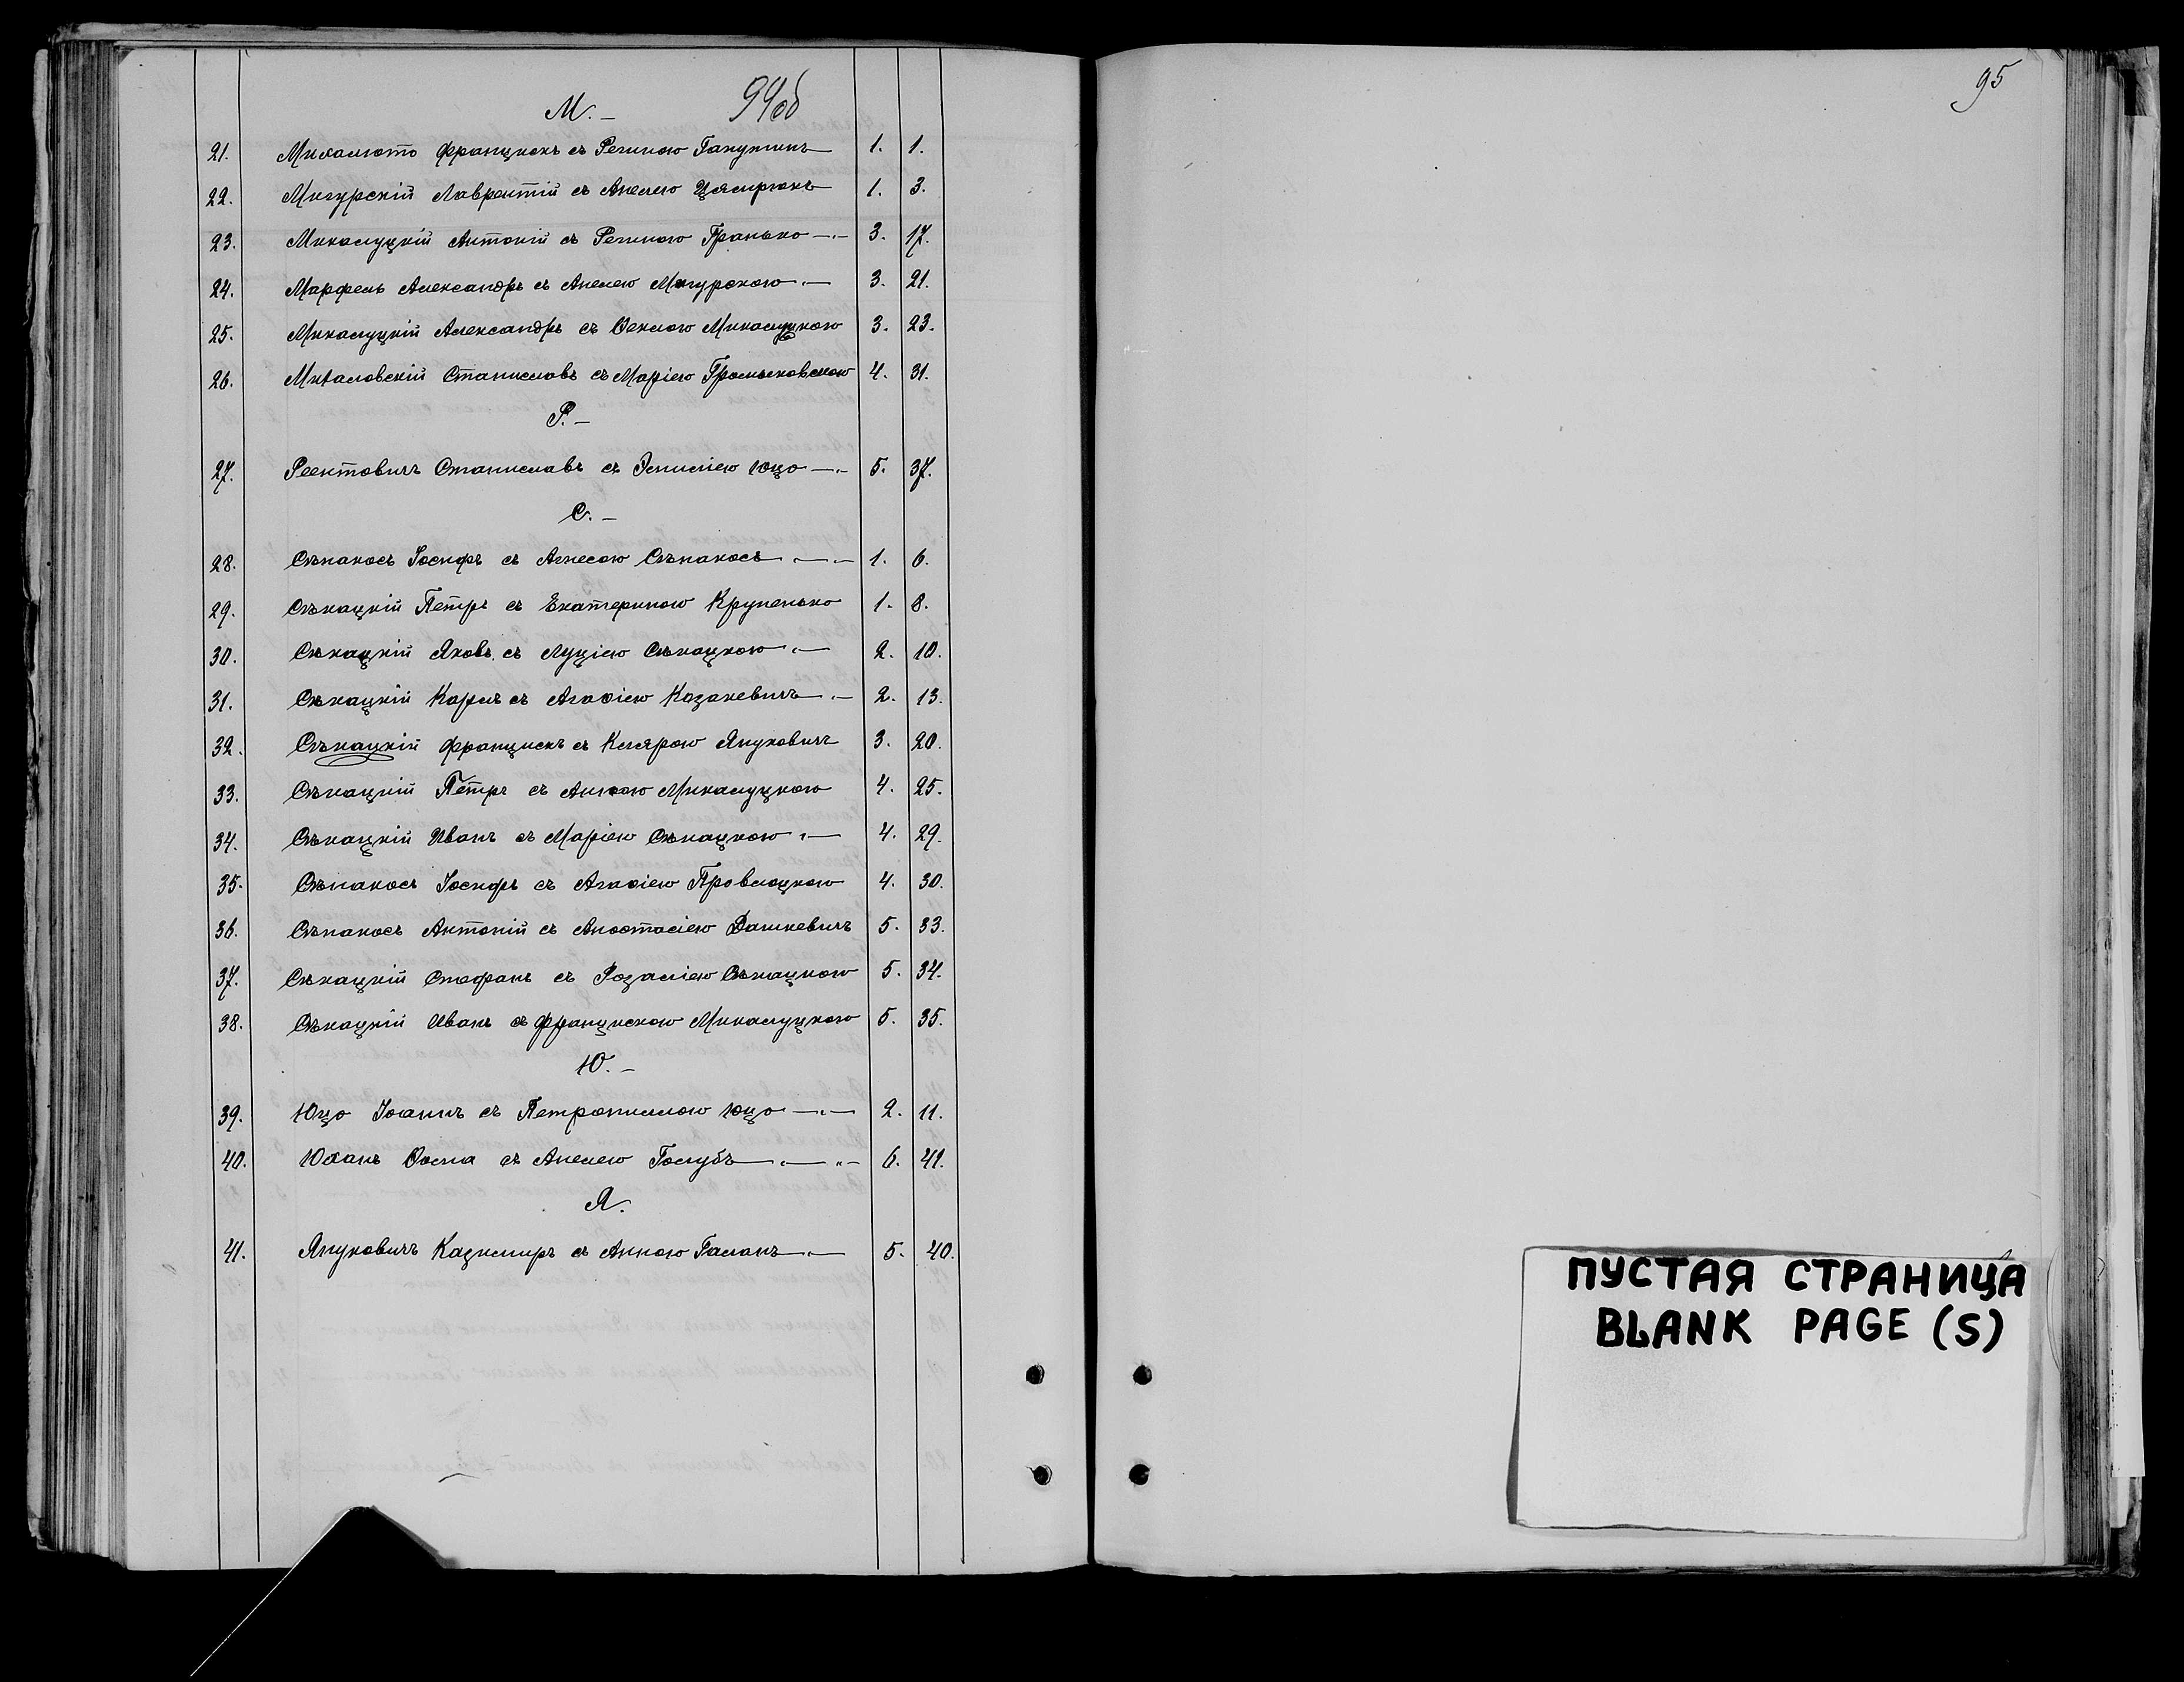 94об
М.
21. Михалюто Францискъ съ Региною Ганутинъ 1. 1.
22. Мигурскій Лаврентій съ Анелею 1. 3.
23. Микалуцкій Антоній съ Региною Гранько 3. 17.
24. Марфель Александръ съ Анелею Мигурскою 3. 21.
25. Микалуцкій Александръ съ Ѳеклою Микалуцкою 3. 23.
26. Михаловскій Станиславъ съ Маріею 4. 31.
Р.
27. Реентовичъ Станиславъ съ Эмиліею Юцо 5. 37.
С.
28. Сѣпакосъ Іосифъ съ Агнесою Сѣпакосъ 1. 6.
29. Сѣкацкій Петръ съ Екатериною Крупенько 1. 8.
30. Сѣкацкій Яковъ съ Луціею Сѣкацкою 2. 10.
31. Сѣкацкій Карлъ съ Агаѳіею Казакевичъ 2. 13.
32. Сѣкацкій Францискъ съ Клярою Януковичъ 3. 20.
33. Сѣкацкій Петръ съ Анною Микалуцкою 4. 25.
34. Сѣкацкій Иванъ съ Маріею Сѣкацкою 4. 29.
35. Сѣпакосъ Іосифъ съ Агаѳіею 4. 30.
36. Сѣпакосъ Антоній съ Анастасіею Дашкевичъ 5. 33.
37. Сѣкацкій Стефанъ съ Розаліею Сѣкацкою 5. 34.
38. Сѣкацкій Иванъ съ Францискою Микалуцкою 5. 35.
Ю.
39. Юцо Іоаннъ съ Петронилею Юцо 2. 11.
40. Юханъ Ѳома съ Анелею Голубъ 6. 41.
Я.
41. Януковичъ Казимиръ съ Анною Галанъ 5. 40.
95
ПУСТАЯ СТРАНИЦА
BLANK PAGE (S)